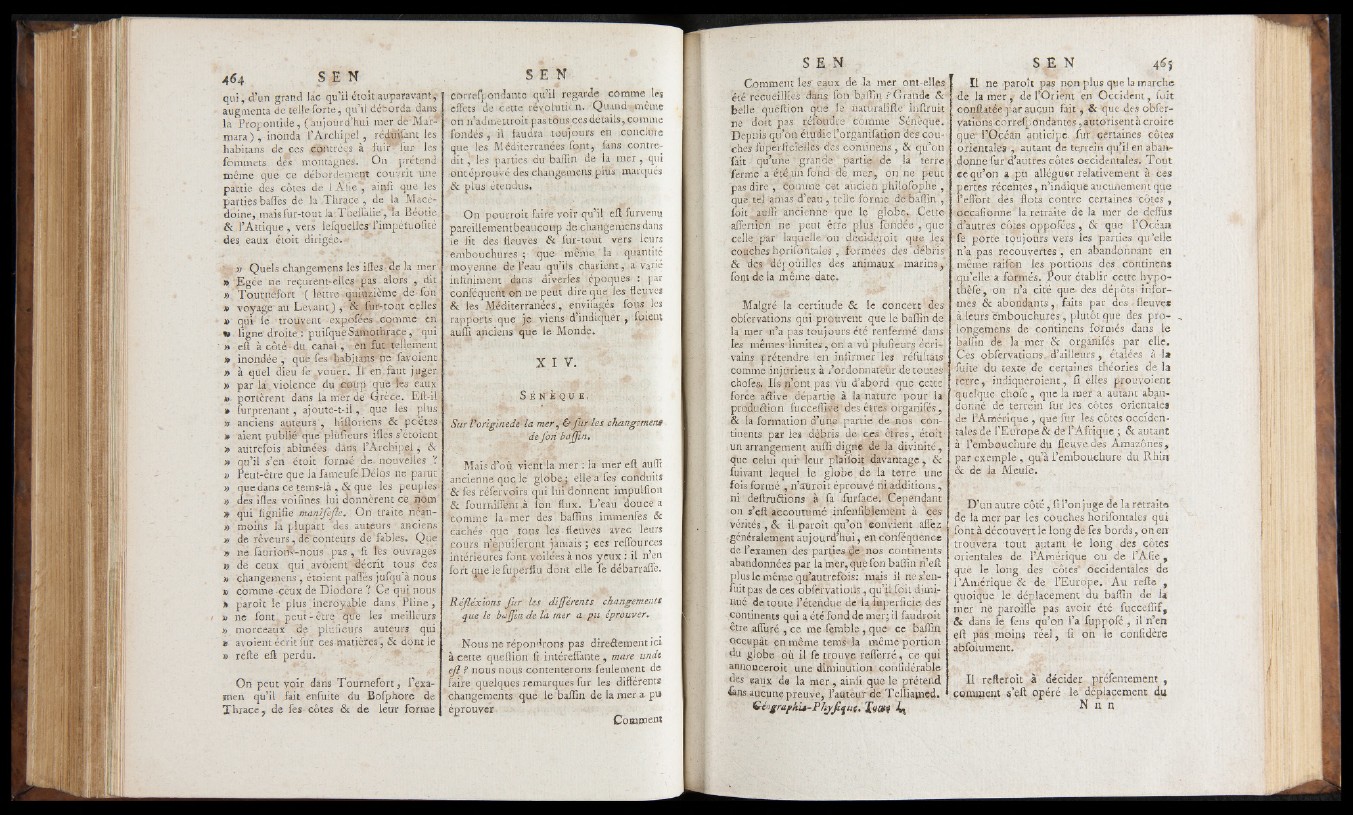 464 SEN
qui, d'un grand lac qu'il étoit auparavant,
augmenta de telle sorte, qu'il déborda dans
la Propontide, (aujourd'hui mer de Mar-
mara), inonda l'Archipel, réduisant les
habitans de ces contrées à fuir sur les
sommets des montagnes. On prétend
même que ce débordement couvrit une
partie des côtes de l'Asie, ainsi que les
parties basses de la Thrace, de la Macé-
doine, mais sur-tout la Thessalie, la Béotie
& l'Attique, vers lesquelles l'impétuosité
des eaux étoit dirigée.
» Quels changemens les isles de la mer
» Égée ne reçurent-elles pas alors, dit
» Tournefort (lettre quinzième de son
» voyage au Levant), & sur-tout celles
» qui se trouvent exposées comme en
» ligne droite : puisque Samothrace, qui
» est à côté du canal, en fut tellement
» inondée, que ses habitans ne savoient
» à quel dieu se vouer. Il en faut juger
» par la violence du coup que les eaux
» portèrent dans la mer de Grèce. Est-il
» surprenant, ajoute-t-il, que les plus
» anciens auteurs, historiens & poëtes
» aient publié que plusieurs isles s'étoient
» autrefois abimées dans l'Archipel, &
» qu'il s'en étoit formé de nouvelles ?
» Peut-être que la fameuse Délos ne parut
» que dans ce tems-là, & que les peuples
» des isles voisines lui donnèrent ce nom
» qui signifie manifeste. On traite néan-
» moins la plupart des auteurs anciens
» de rêveurs, de conteurs de fables. Que
» ne saurions-nous pas, si les ouvrages
» de ceux qui avoient décrit tous ces
» changemens, étoient passés jusqu'à nous
» comme ceux de Diodore ? Ce qui nous
» paroit le plus incroyable dans Pline,
» ne sont peut-être que les meilleurs
» morceaux de plusieurs auteurs qui
» avoient écrit sur ces matières, & dont le
» reste est perdu.
On peut voir dans Tournefort, l'exa-
men qu'il fait ensuite du Bosphore de
Thrace, de ses côtes & de leur forme
SEN
correspondante qu'il regarde comme les
effets de cette révolution. Quand même
on n'admettroit pas tous ces détails, comme
fondés, il faudra toujours en conclure
que les Méditerranées sont, sans contre-
dit, les parties du bassin de la mer, qui
ont éprouvé des changemens plus marqués
& plus étendus.
On pourroit faire voir qu'il est survenu
pareillement beaucoup de changemens dans
le lit des fleuves & sur-tout vers leurs
embouchures ; que même la quantité
moyenne de l'eau qu'ils charient, a varié
infiniment dans diverses époques : par
conséquent on ne peut dire que les fleuves
& les Méditerranées, envisagés sous les
rapports que je viens d'indiquer, soient
aussi anciens que le Monde.
XIV.
SENÈQUE.
Sur l'origine de la mer, & sur les changemens
de son bassin.
Mais d'où vient la mer : la mer est aussi
ancienne que le globe ; elle a ses conduits
& ses réservoirs qui lui donnent impulsion
& fournissent à son flux. L'eau douce a
comme la mer des bassins immenses &
cachés que tous les fleuves avec leurs
cours n'épuiseront jamais ; ces ressources
intérieures sont voilées à nos yeux : il n'en
sort que le superflu dont elle se débarrasse.
Réflexions sur les différents changemens
que le bassin de la mer a pu éprouver.
Nous ne répondrons pas directement ici
à cette question si intéressante, mare unde
est ? nous nous contenterons seulement de
faire quelques remarques sur les différents
changements que le bassin de la mer a pu
éprouver
Comment
SEN
Comment les eaux de la mer ont-elles
été recueillies dans son bassin ? Grande &
belle question que le naturaliste instruit
ne doit pas résoudre comme Sénèque.
Depuis qu'on étudie l'organisation des cou-
ches superficielles des continens, & qu'on
sait qu'une grande partie de la terre
ferme a été un fond de mer, on ne peut
pas dire, comme cet ancien philosophe,
que tel amas d'eau, telle forme de bassin,
soit aussi ancienne que le globe. Cette
assertion ne peut être plus fondée, que
celle par laquelle on décideroit que les
couches horisontales, formées des débris
& des dépouilles des animaux marins,
sont de la même date.
Malgré la certitude & le concert des
observations qui prouvent que le bassin de
la mer n'a pas toujours été renfermé dans
les mêmes limites, on a vu plusieurs écri-
vains prétendre en infirmer les résultats
comme injurieux à l'ordonnateur de toutes
choses. Ils n'ont pas vu d'abord que cette
force active départie à la nature pour la
production successive des êtres organisés,
& la formation d'une partie de nos con-
tinents par les débris de ces êtres, étoit
un arrangement aussi digne de la divinité,
que celui qui leur plaisoit davantage, &
suivant lequel le globe de la terre une
fois formé, n'auroit éprouvé ni additions,
ni destructions à sa surface. Cependant
on s'est accoutumé insensiblement à ces
vérités, & il paroît qu'on convient assez
généralement aujourd'hui, en conséquence
de l'examen des parties de nos continents
abandonnées par la mer, que son bassin n'est
plus le même qu'autrefois ; mais il ne s'en-
suit pas de ces observations, qu'il soit dimi-
nué de toute l'étendue de la superficie des
continents qui a été fond de mer ; il faudroit
être assuré, ce me semble, que ce bassin
occupât en même tems la même portion
du globe où il se trouve resserré, ce qui
annonceroit une diminution considérable
des eaux de la mer, ainsi que le prétend
sans aucune preuve, l'auteur de Telliamed.
Géographie-Physique. Tome I.
SEN 465
Il ne paroît pas non plus que la marche
de la mer, de l'Orient en Occident, soit
constatée par aucun fait, & que des obser-
vations correspondantes, autorisent à croire
que l'Océan anticipe sur certaines côtes
orientales, autant de terrein qu'il en aban-
donne sur d'autres côtes occidentales. Tout
ce qu'on a pu alléguer relativement à ces
pertes récentes, n'indique aucunement que
l'effort des flots contre certaines côtes,
occasionne la retraite de la mer de dessus
d'autres côtes opposées, & que l'Océan
se porte toujours vers les parties qu'elle
n'a pas recouvertes, en abandonnant en
même raison les portions des continens
qu'elle a formés. Pour établir cette hypo-
thèse, on n'a cité que des dépôts infor-
mes & abondants, faits par des fleuves
à leurs embouchures, plutôt que des pro-
longemens de continens formés dans le
bassin de la mer & organisés par elle.
Ces observations d'ailleurs, étalées à la
suite du texte de certaines théories de la
terre, indiqueroient, si elles prouvoient
quelque chose, que la mer a autant aban-
donné de terrein sur les côtes orientales
de l'Amérique, que sur les côtes occiden-
tales de l'Europe & de l'Afrique ; & autant
à l'embouchure du fleuve des Amazônes,
par exemple, qu'à l'embouchure du Rhin
& de la Meuse.
D'un autre côté, si l'on juge de la retraite
de la mer par les couches horisontales qui
sont à découvert le long de ses bords, on en
trouvera tout autant le long des côtes
orientales de l'Amérique ou de l'Asie,
que le long des côtes occidentales de
l'Amérique & de l'Europe. Au reste,
quoique le déplacement du bassin de la
mer ne paroisse pas avoir été successif,
& dans le sens qu'on l'a supposé, il n'en
est pas moins réel, si on le considère
absolument.
Il resteroit à décider présentement,
comment s'est opéré le déplacement du
Nnn